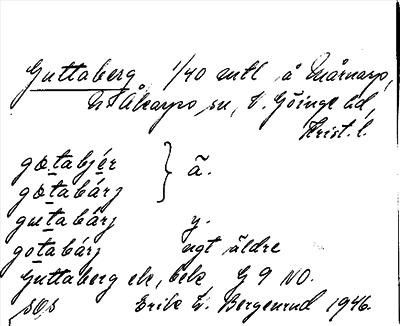 Guttaberg 1/40 mtl å Mårnarp,
N. Åkarps sn, V. Göinge hd,
Krist. l.
gɷtabjér } ã.
gɷtabárj
gutabárj y.
gotabárj ngt äldre
Guttaberg ek, bek, G 9 NO.
Erik G. Bergenrud 1946.